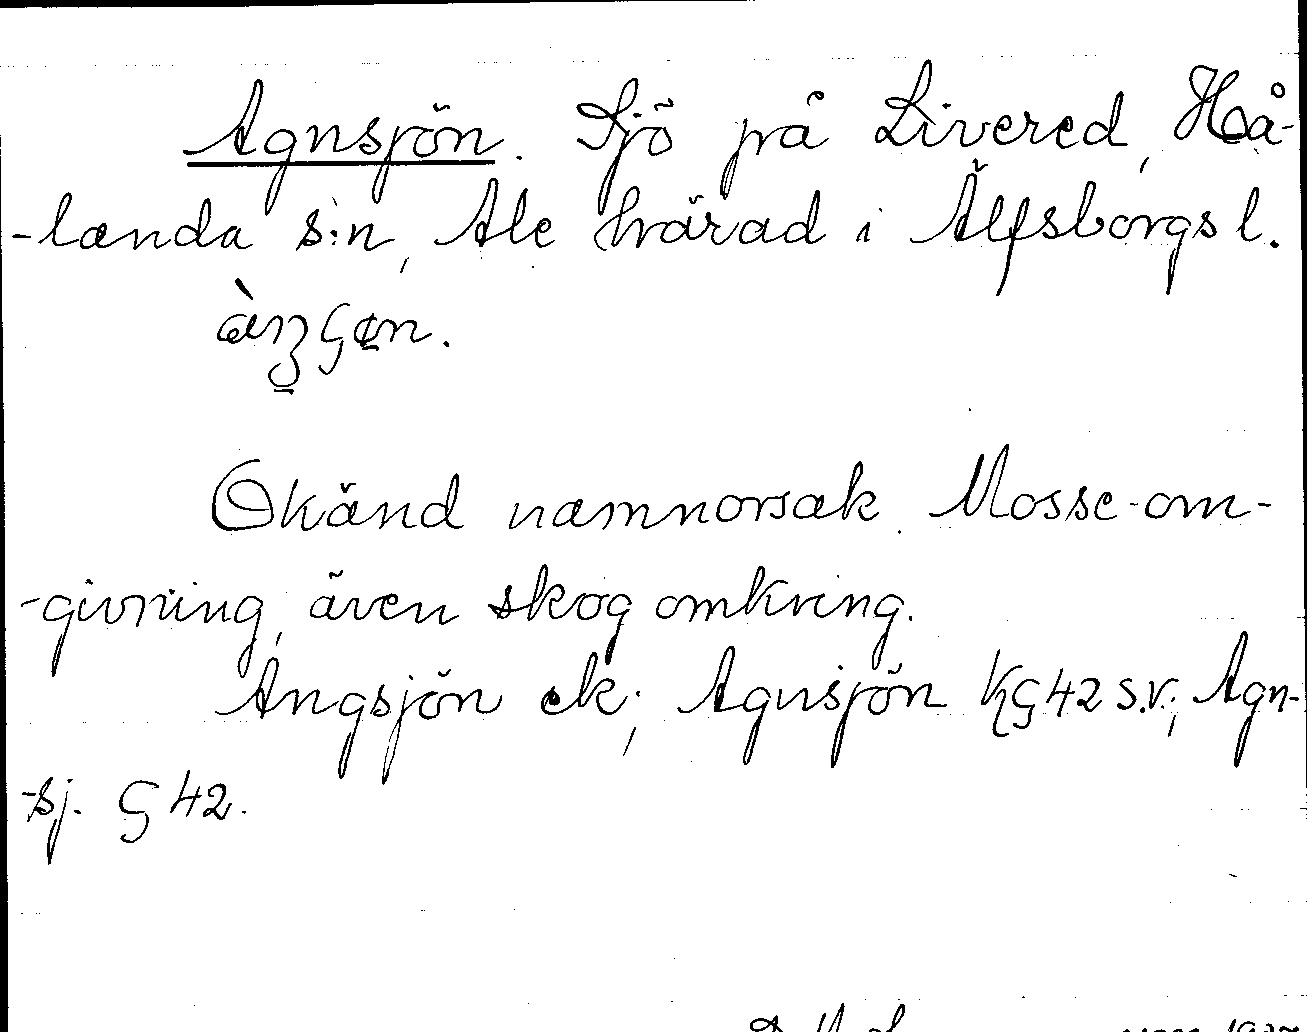 Agnsjön. Sjö på Livered, Hå-
-landa s:n, Ale härad i Älfsborgs l.
Okänd namnorsak. Mosse-om-
-givning, även skog omkring.
Angsjön ek; Agnsjön KG 42 s.v.; Agn-
-sj. G 42.